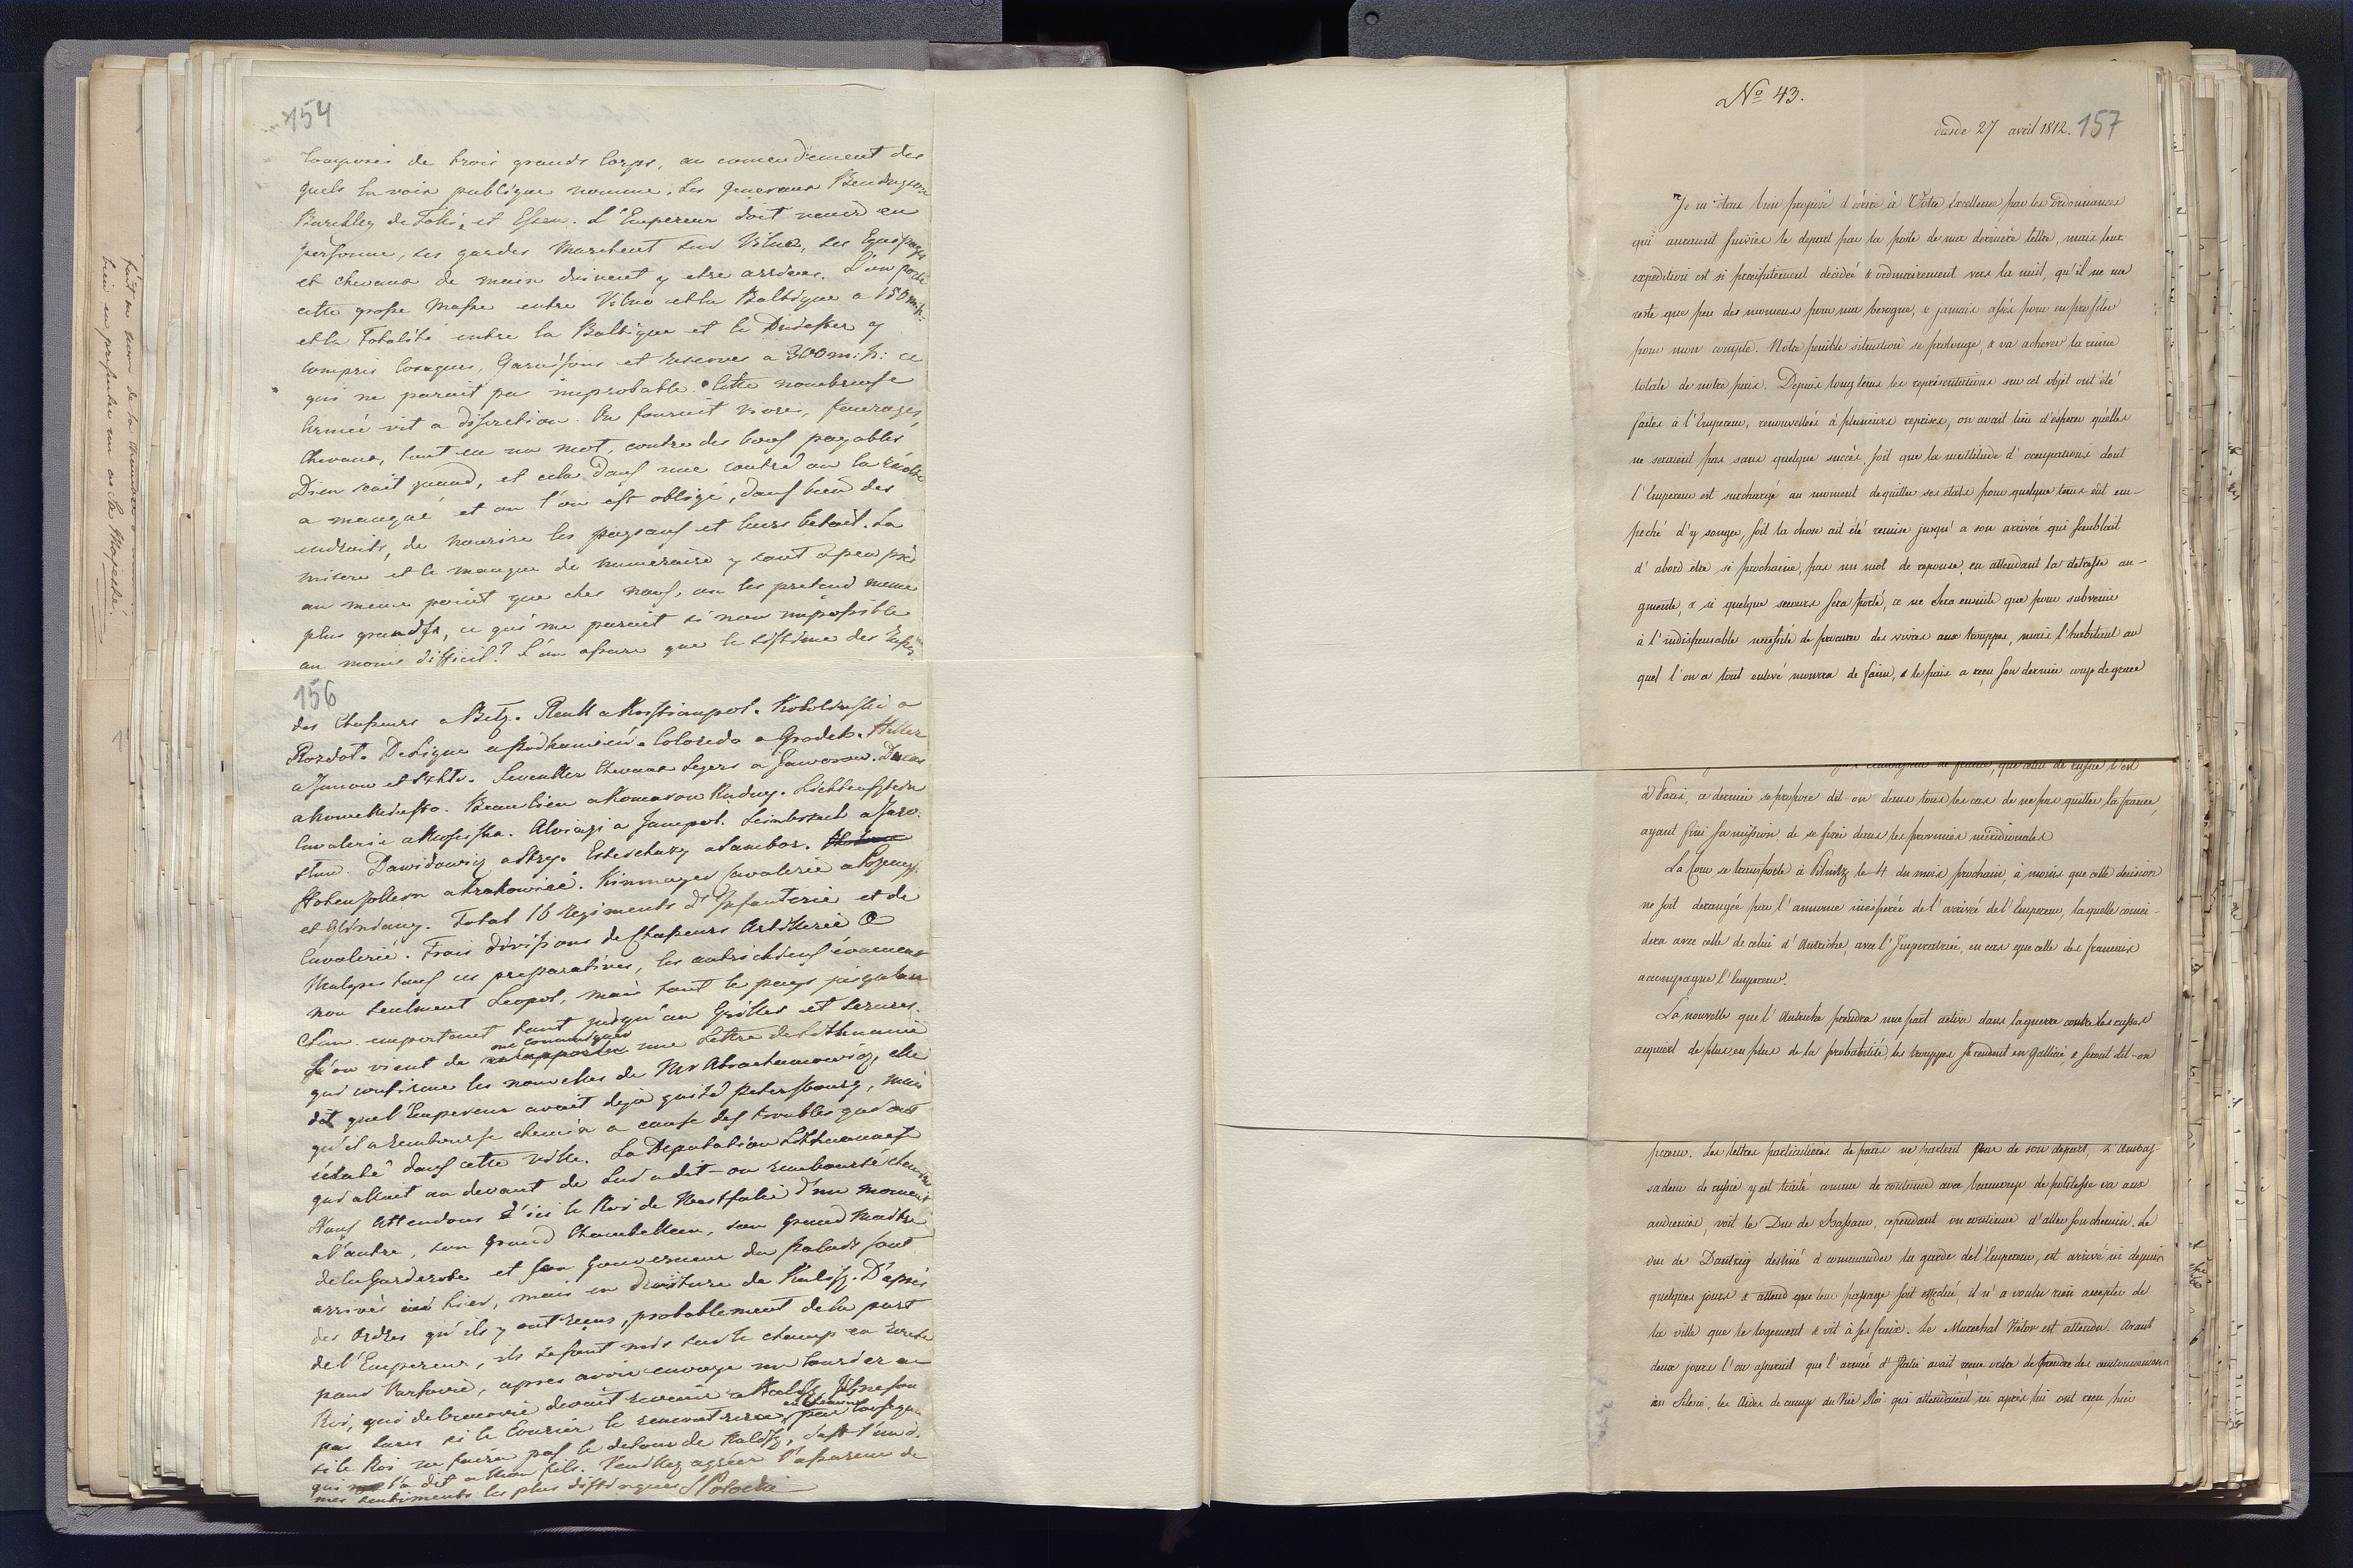 154
Composés de trois grands Corps, au comendement des
quels la voix publique nomme, les Generaux Beningson
Barckley de Tolli, et Essen. L'Empereur doit venir en
personne, ses gardes marchent sur Vilna, ses Equipages
et chevaux de main doivent y etre arrivés. L'on porte
cette grosse Masse entre Vilna et la Baltique a 150
et la Totalité entre la Baltique et le Dniester y
compris Cosaques, Garnisons et reserves a 300 m: h: ce
qui ne parait pas improbable. Cette nombreuse
Armée vit a discretion. On fournit vivre, fourages,
Chevaux, tout en un mot, contre des bons payables
Dieu sait quand, et cela dans une contrée ou la recolte
a manqué et ou l'on est obligé, dans bien des
endroits, de nourire les paysans et leurs betail. La
misere et le manque de numeraire y sont a peu près
au meme point que chés nous, on les pretend meme
plus grands, ce qui me parait si non impossible
au moins difficil? L'on assure que le sistème des
156
des Chasseurs a Betz. Reuss a Kristianpol. Kotolinski a
Rozdot. DeLigne a Podkamień. Coloredo a Grodek. Hiller
a Janow et Szkło. Chevaux Legers a Jaworow. Ducas
a Beaulieu a Komarow Rudny. Lichtensztein
Cavalerie a Mosciska. Alvinzi a Jampol. a Jaro-
slau. Dawidowicz a Stry. Esterhazy a Sambor.
Hohenzollern a Krakowiec. Kinmayer Cavalerie a
et Gliniany. Total 16 regiments d'Infanterie et de
Cavalerie. Trois divisions de Chasseurs Artillerie
Malgré tous ces preparatives, les autrichiens évacuent
non seulment Leopol, mais tout le pays jusqu'au
San emportant tout jusqu'au Grilles et serures.
L'on vient de me comuniquer une lettre de Lithuanie
qui confirme les nouvelles de Mr Abrahamowicz, elle
dit que l'Empereur avait deja quité Petersbourg, mais
qu'il a rembourse chemin a cause des troubles qui ont
éclaté dans cette ville. La Deputation Lithuanienne
qui allait au devant de Lui a dit-on remboursé chemin
Nous attendons d'ici le Roi de Westfalie d'un moment
a l'autre, son Grand Chambellan, son Grand Maitre
de la Garderobe et son Gouverneur du palais sont
arrivés hier, mais en droiture de Kalisz. D'après
des Ordres qu'ils y ont reçus, probablement de la part
de l'Empereur, ils se sont mis sur le champ en route
pour Varsovie, apres avoir envoyé un Courier au
Roi, qui de devait revenir a Kalisz. Je ne sais
pas si le Courier le rencontrera en chemin
si le Roi ne faira pas le detour de Kalisz, c'est l'un d.
qui l'a dit a Mon fils. Veuillez agréer l'assurance de
mes sentiments les plus distingués SPotocki
bien en presenter un à Sa Majesté.
No 43.
dresde 27 avril 1812. 157
Je m'étais bien proposé d'écrire à Votre Excellence par les ordonnances
qui auraient suivies le depart par la poste de ma derniere lettre, mais leur
expedition est si precipitement décidée & ordinairement vers la nuit, qu'il ne me
reste que peu des momens pour ma besogne, & jamais assés pour en profiter
pour mon compte. Notre penible situation se prolonge, & va achever la ruine
totale de notre païs. Depuis longtems les représentations sur cet objet ont été
faites à l'Empereur, renouvellées à plusieurs reprises, on avait lieu d'esperer qu'elles
ne seraient pas sans quelque succès, soit que la multitude d'occupations dont
l'Empereur est surchargé au moment de quitter ses etats pour quelque tems eût em-
peché d'y songer, soit la chose ait été remise jusqu'a son arrivée qui semblait
d'abord être si prochaine, pas un mot de reponse, en attendant la detresse au-
gmente & si quelque secours sera porté, ce ne sera ensuite que pour subvenir
à l'indispensable necessité de procurer des vivres aux trouppes, mais l'habitant au
quel l'on a tout enlevé mourra de faim, & le païs a reçu son dernier coup de grace
de france, que celui de russie s'est
à Paris, ce dernier se propose dit-on dans tous les cas de ne pas quitter la france,
ayant fini sa mission de se fixer dans les provinces méridionales
La Cour se transporte à Pilnitz le 4 du mois prochain, à moins que cette decision
ne soit derangée par l'annonce inesperée de l'arrivée de l'Empereur, laquelle coinci-
dera avec celle de celui d'Autriche, avec l'Imperatrice, en cas que celle des francais
accompagne l'Empereur.
La nouvelle que l'Autriche prendra une part active dans la guerre contre les russes
acquiert de plus en plus de la probabilité, les trouppes se rendent en Gallicie & seront dit-on
pereur. Les lettres particulieres de paris ne parlent pas de son depart, l'Ambas-
sadeur de russie y est traité comme de coutume avec beaucoup de politesse va aux
audiences, voit le Duc de Bassano, cependant on continue d'aller son chemin. Le
duc de Dantzig destiné à commander la garde de l'Empereur, est arrivé ici depuis
quelques jours & attend que leur passage soit effectué, il n'a voulu rien accepter de
la ville que le logement & vit à ses fraix. Le Marechal Victor est attendu. Avant
deux jours l'on assurait que l'armée d'Italie avait reçu ordre de prendre des cantonnemens
en Silesie, les Aides de camp du Vice Roi qui attendaient ici après lui ont reçu hier